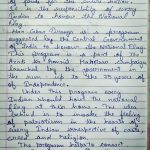 of pride for the entire nation
Indian to honour the National
Flag.
Har Ghar Tiranga is a program
organised by the Central Government
of India to honour the National Flag
This program is part of the
Azadi ka Amrit Mahotsav campaign
launched by the government in
the run up to the 75 years of
of Independence.
This program every
Indian should have the national
flag at their home. The idea
initiative to invoke the feeling
of patriotism in the hearts of
every Indian irrespective of caste
creed and religion.
The program helps to connect